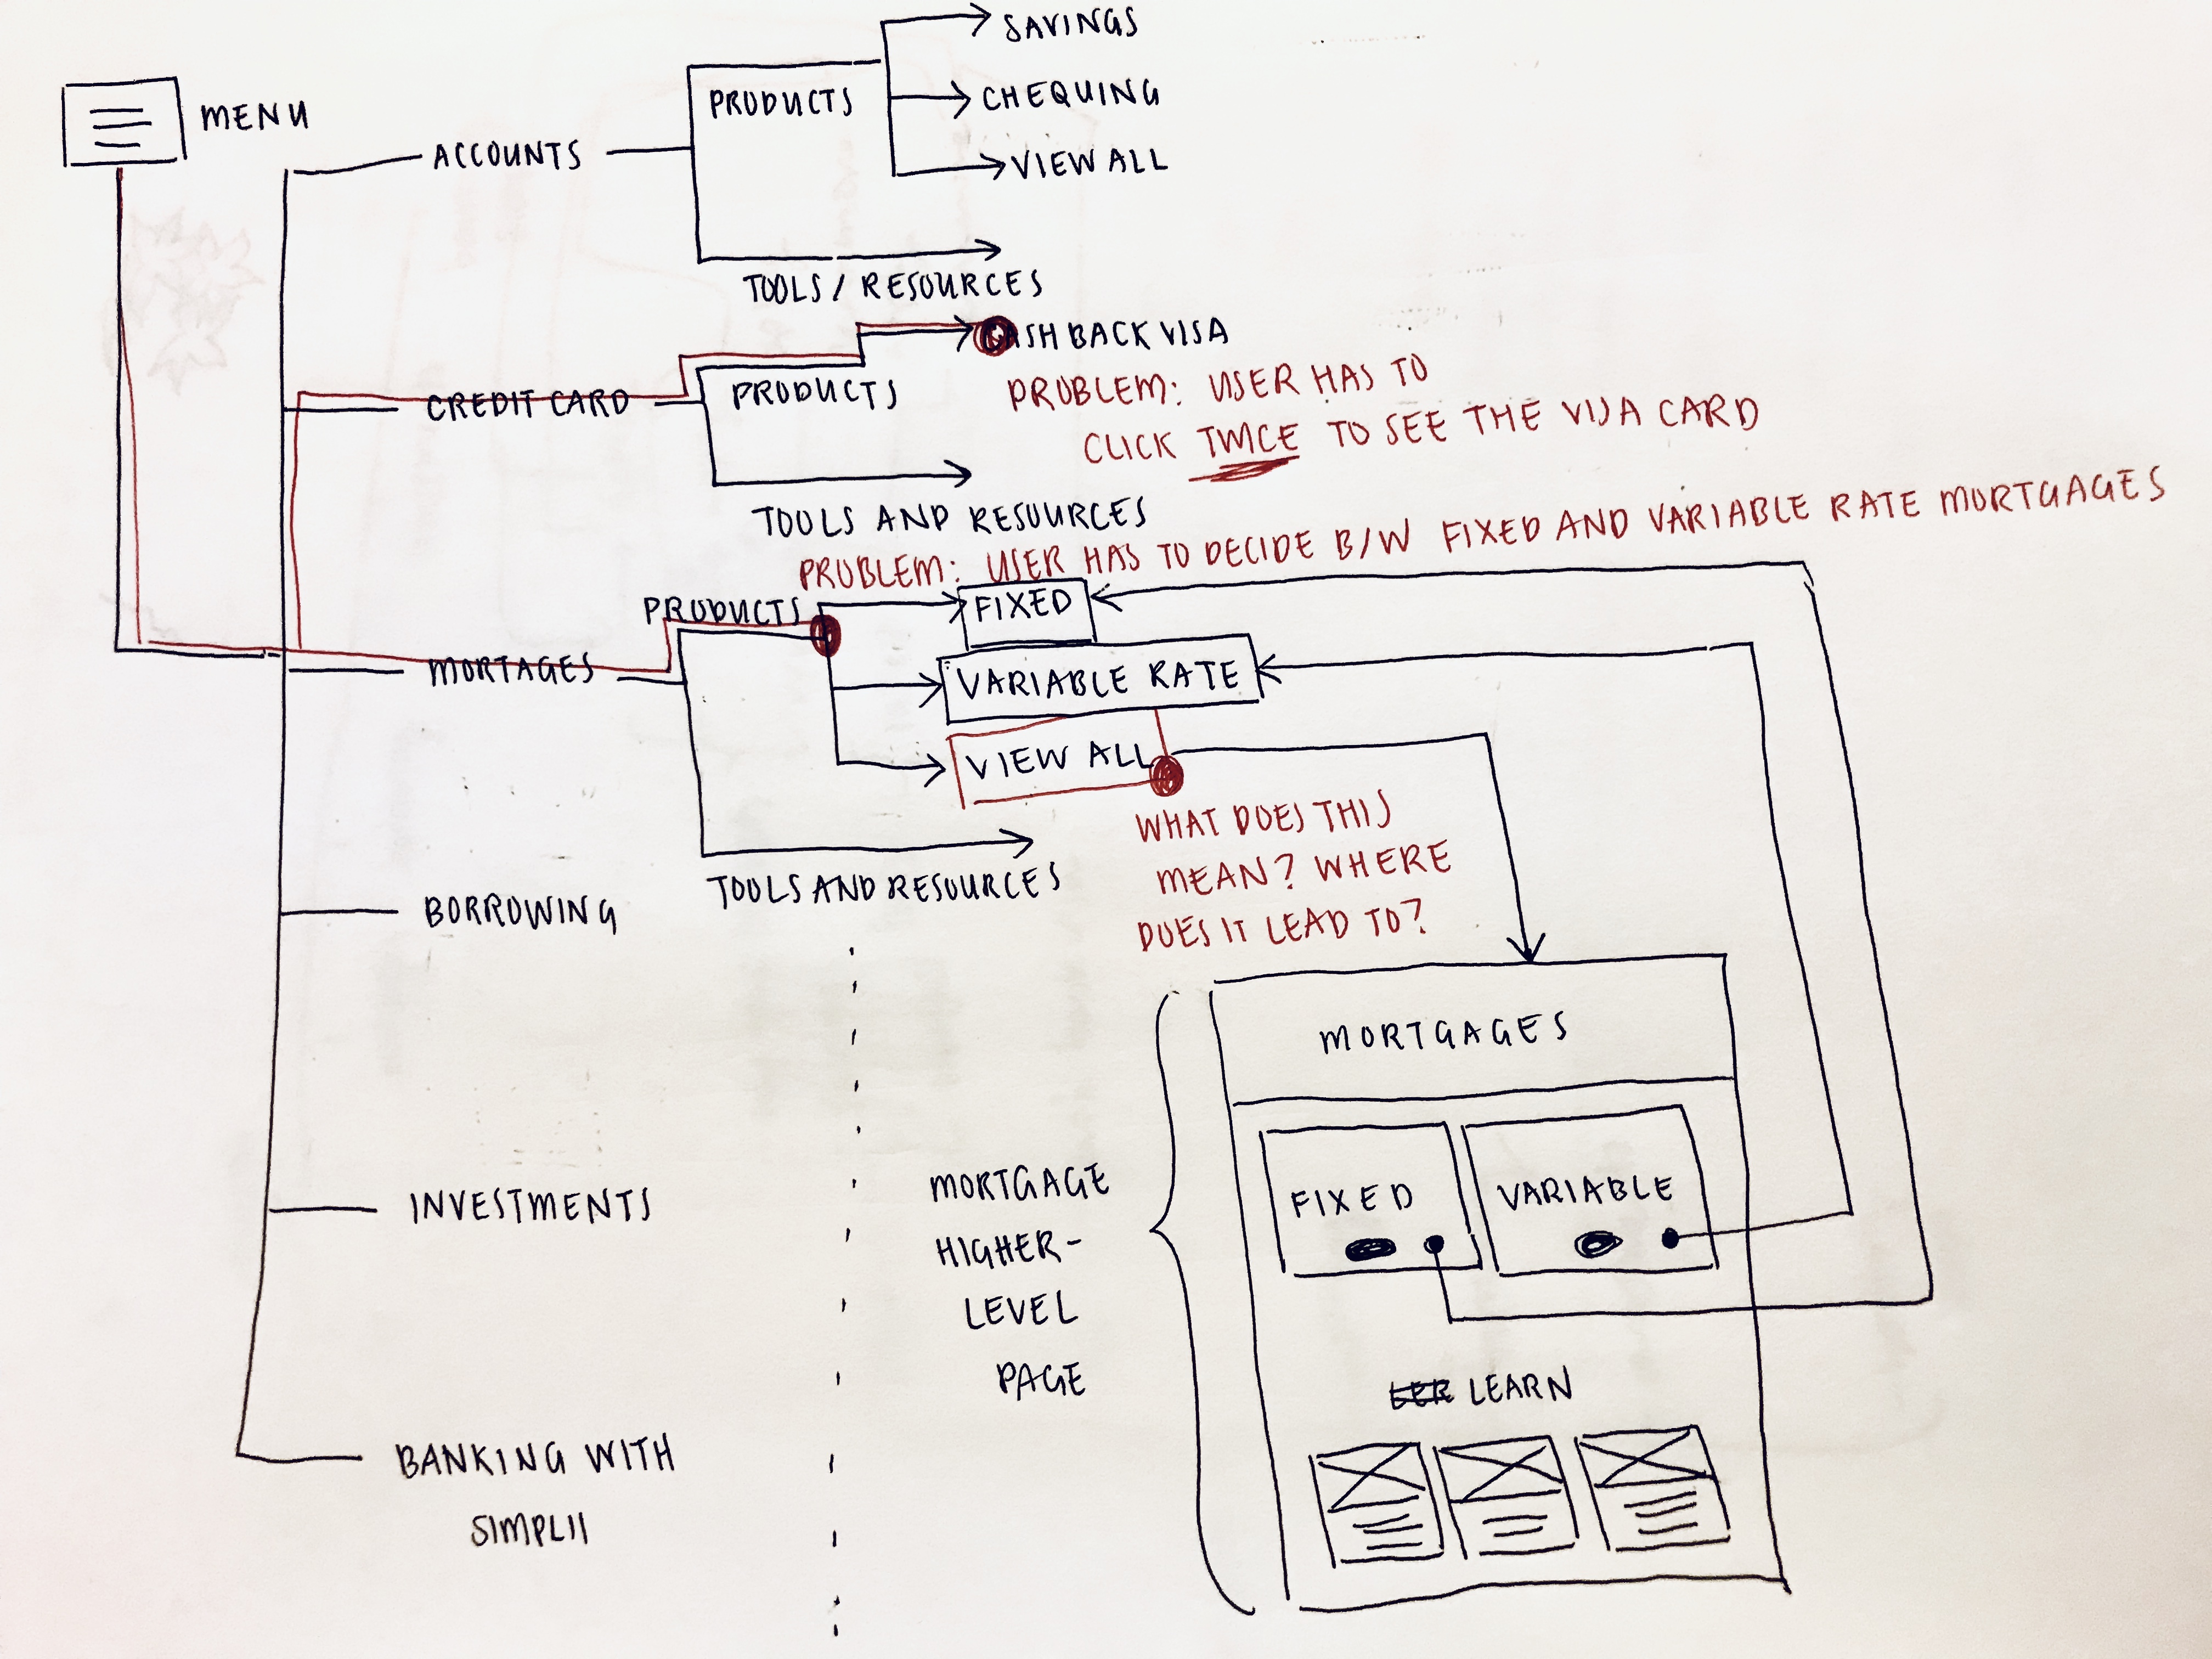 MENU
ACCOUNTS
PRODUCTS
SAVINGS
CHEQUING
VIEW ALL
TOOLS / RESOURCES
CREDIT CARD
PRODUCTS
CASH BACK VISA
PROBLEM: USER HAS TO
CLICK TWICE TO SEE THE VISA CARD
TOOLS AND RESOURCES
PROBLEM: USER HAS TO DECIDE B/W FIXED AND VARIABLE RATE MORTGAGES
MORTAGES
PRODUCTS
FIXED
VARIABLE RATE
VIEW ALL
WHAT DOES THIS
MEAN? WHERE
DOES IT LEAD TO?
TOOLS AND RESOURCES
BORROWING
INVESTMENTS
BANKING WITH
SIMPLII
MORTGAGE
HIGHER-
LEVEL
PAGE
MORTGAGES
FIXED
VARIABLE
LEARN